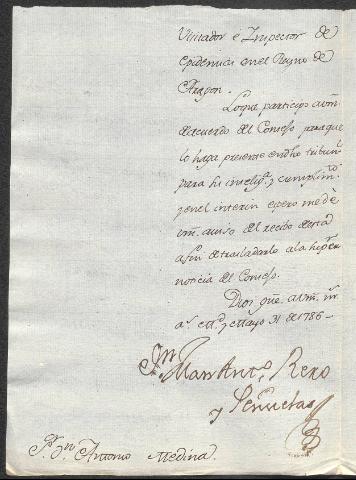 Visitador é Inspector de
epidemias en el Reyno de
Aragon.
Loque participo avm.
deacuerdo del Consejo paraque
lo haga presente endho tribunl.
para su inteliga. y cumplimto.
y enel interin espero medé
vm. aviso del recibo deesta
afin detrasladarlo ala superr.
noticia del Consejo.
Dios gue. avm. ms.
as. Md. y Mayo 31 de 1786 -
Dn. Man Anto. Rexo
y Peñuelas
Sr. Dn. Antonio Medina.